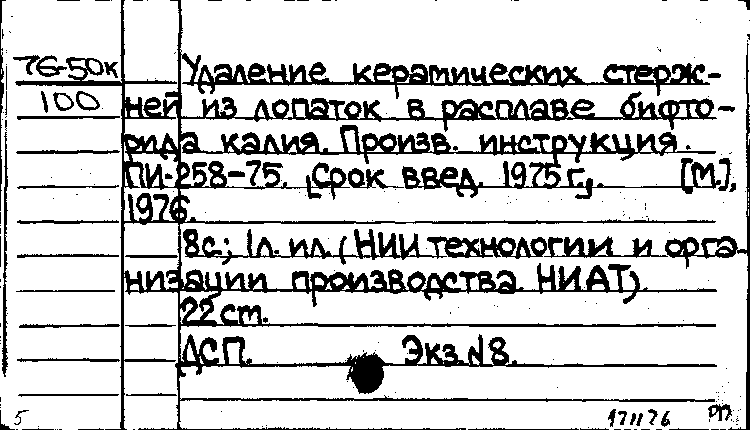 76-50к
100
Удаление керамических стерж-
ней из лопаток в расплаве бифто-
рида калия. Произв. инструкция.
ПИ-258-75. [Срок введ. 1975 г.]. [М.],
1976.
8с.; 1л. ил. (НИИ технологии и орга-
низации производства НИАТ).
22 ст.
ДСП. Экз.№8.
5